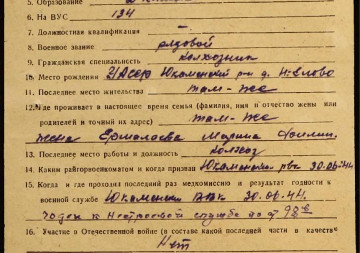 5. Образование
6. На ВУС 134
7. Должностная квалификация —
8. Военное звание рядовой
9. Гражданская специальность колхозник
10. Место рождения УАССР Юкаменский р-н д.
11. Последнее место жительства там-же
12. Где проживает в настоящее время семья (фамилия, имя и отчество жены или
родителей и точный их адрес) там-же
жена Ермолаева Марина
13. Последнее место работы и должность колхоз
14. Каким райгорвоенкоматом и когда призван Юкаменский рвк 30.06.44
15. Когда и где проходил последний раз медкомиссию и результат годности к
военной службе Юкаменский РВК 30.06.44.
годен к нестроевой службе по ст 98
16. Участие в Отечественной войне (в составе какой последней части в качестве
Нет